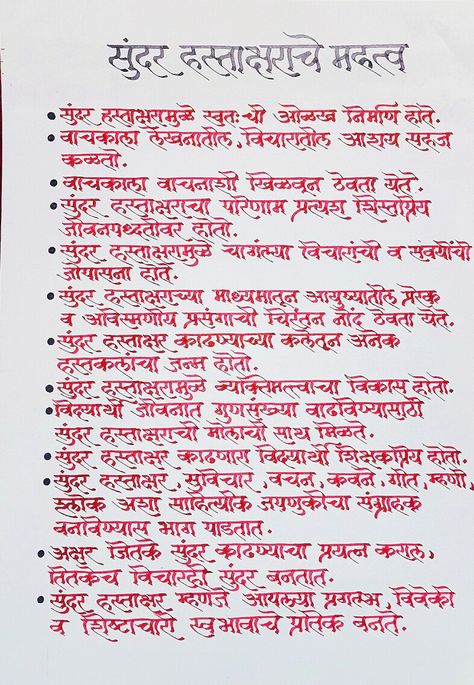 सुंदर हस्ताक्षराचे महत्व
• सुंदर हस्ताक्षरामुळे स्वतःची ओळख निर्माण होते.
• वाचकाला लेखनातील, विचारातील आशय सहज
कळतो.
• वाचकाला वाचनाशी खिळवून ठेवता येते.
• सुंदर हस्ताक्षराचा परिणाम प्रत्यक्ष शिस्तप्रिय
जीवनपध्दतीवर होतो.
• सुंदर हस्ताक्षरामुळे चांगल्या विचारांची व सवयींची
जोपासना होते.
• सुंदर हस्ताक्षराच्या माध्यमातून आयुष्यातील प्रेरक
व अविस्मणीय प्रसंगाची चिरंतन नोंद ठेवता येते.
• सुंदर हस्ताक्षर काढण्याच्या कलेतून अनेक
हस्तकलांचा जन्म होतो.
• सुंदर हस्ताक्षरामुळे व्यक्तिमत्त्वाचा विकास होतो.
• विद्यार्थी जीवनात गुणसंख्या वाढविण्यासाठी
सुंदर हस्ताक्षराची मोलाची साथ मिळते.
• सुंदर हस्ताक्षर काढणारा विद्यार्थी शिक्षकप्रिय होतो.
• सुंदर हस्ताक्षर, सुविचार, वचन, कवने, गीत, म्हणी,
श्लोक अशा साहित्यीक जपणुकीचा संग्राहक
बनविण्यास भाग पाडतात.
• अक्षर जितके सुंदर काढण्याचा प्रयत्न कराल,
तितकेच विचारही सुंदर बनतात.
• सुंदर हस्ताक्षर म्हणजे आपल्या प्रगल्भ, विवेकी
व शिष्टाचारी स्वभावाचे प्रतिक बनते.